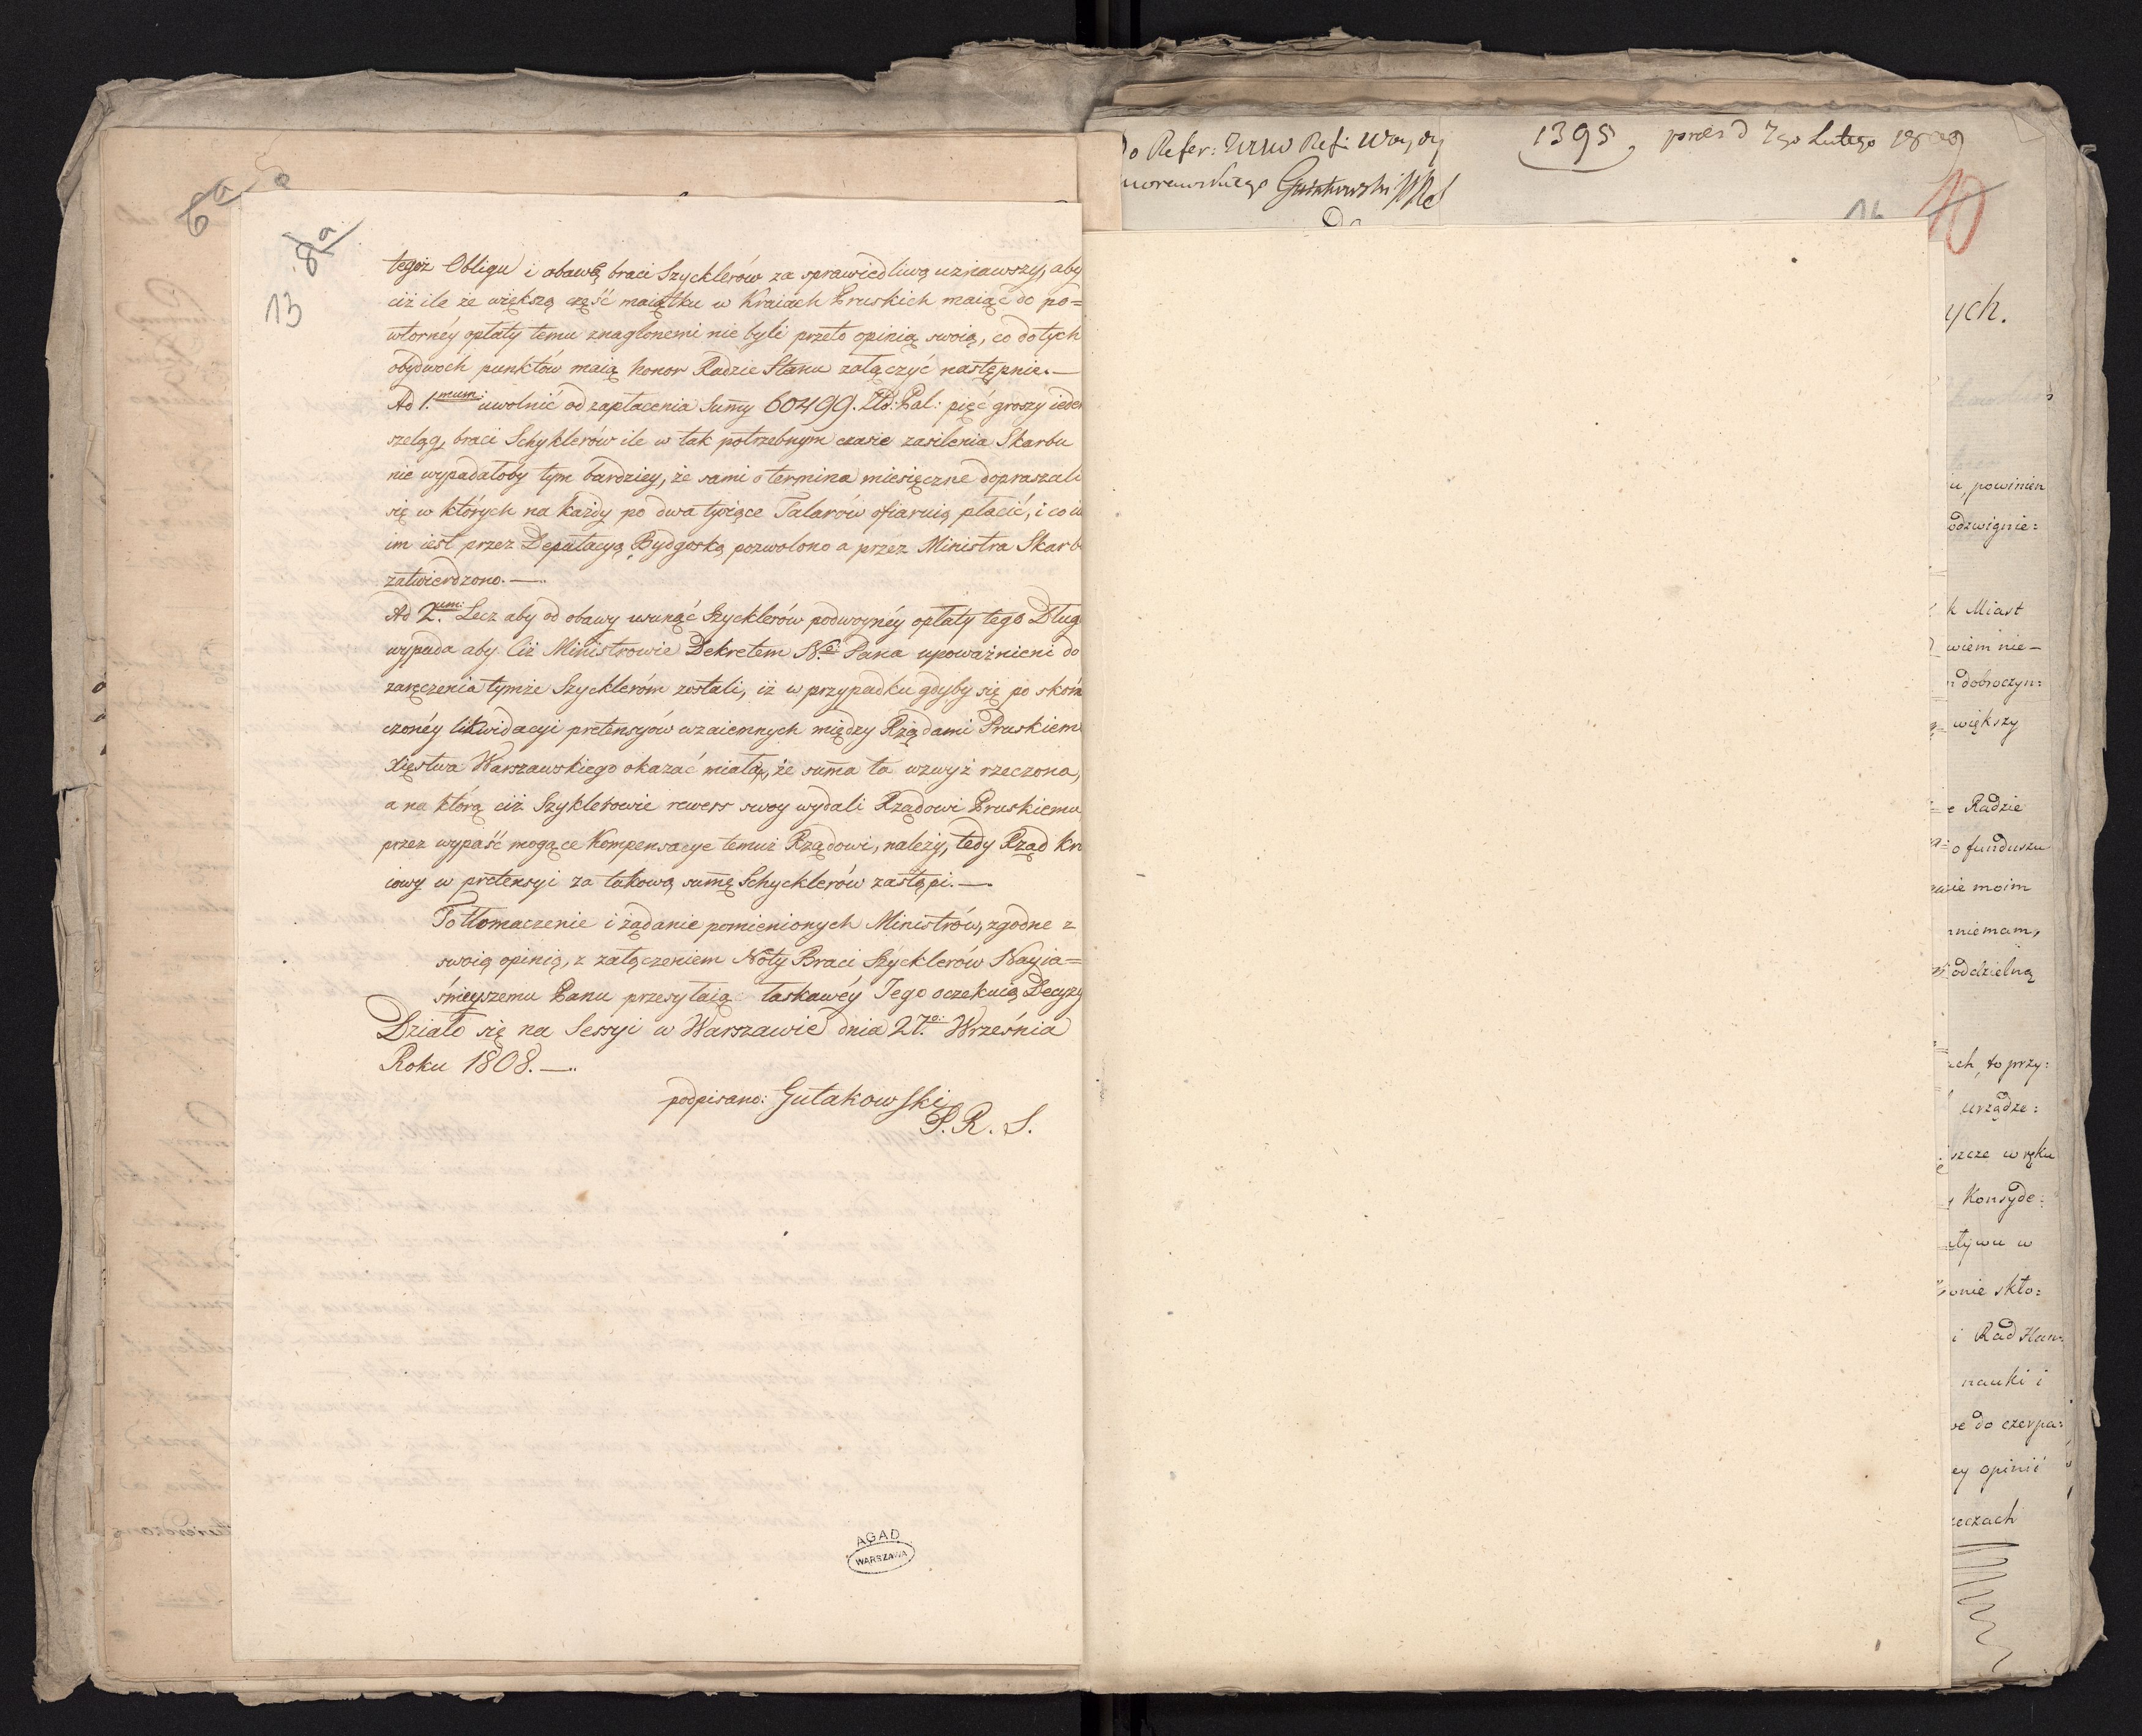 8a
13
tegoż Obligu i obawę braci Szycklerów za sprawiedliwą uznawszy, aby
ciż ile że większą część maiątku w Kraiach Pruskich maiąc do po=
wtornéy opłaty temu znaglonemi nie byli przeto opinią swoią, co do tych
obydwóch punktów maią honor Radzie Stanu załączyć następnie. —
Ad 1.mum: uwolnić od zapłacenia Sum̄y 60499. Zło: Pol: pięć groszy ieden
szeląg, braci Schyklerów ile w tak potrzebnym czasie zasilenia Skarbu
nie wypadałoby tym bardziey, że sami o termina miesięczne dopraszali
się w których na każdy po dwa tysiące Talarów ofiaruią płacić, i co
im iest przez Deputacyą Bydgoską pozwolono a przez Ministra Skarb
zatwierdzono. —
Ad 2.um: Lecz aby od obawy usunąć Szycklerów podwoynéy opłaty tego Dług
wypada aby Ciż Ministrowie Dekretem N.o: Pana upoważnieni do
zaręczenia tymże Szycklerom zostali, iż w przypadku gdyby się po skoń
czonéy likwidacyi pretensyów wzaiemnych między Rządami Pruskiem
Xięstwa Warszawskiego okazać miało, że sum̄a ta wzwyż rzeczona,
a na którą ciż Szyklerowie rewers swoy wydali Rządowi Pruskiemu,
przez wypaść mogące Kompensacye temuż Rządowi, należy, tedy Rząd Kra
iowy w pretensyi za takową sum̄ę Schycklerów zastąpi. —
To tłomaczenie i żądanie pomienionych Ministrów, zgodne z
swoią opinią, z załączeniem Noty Braci Szycklerów Nayia=
śnieyszemu Panu przesyłaią łaskawéy Jego oczekuią Decyzy
Działo się na Sessyi w Warszawie dnia 27.o: Września
Roku 1808. —
podpisano: Gutakowski
P. R. S.
AGAD
WARSZAWA
6a
o Refer:
1395
praes d 7go Lutego
Do
16
10
ych.
powinien
odzwignie:
k Miast
wiem nie—
dobroczyn:
większy
e Radzie
o funduszu
moim
mniemam,
oddzielną
ach, to przy:
urządze:
szcze w ręku
Konsyde:
w
skło:
i Rad Han:
nauki i
do czerpa:
ey opinii
zeczach